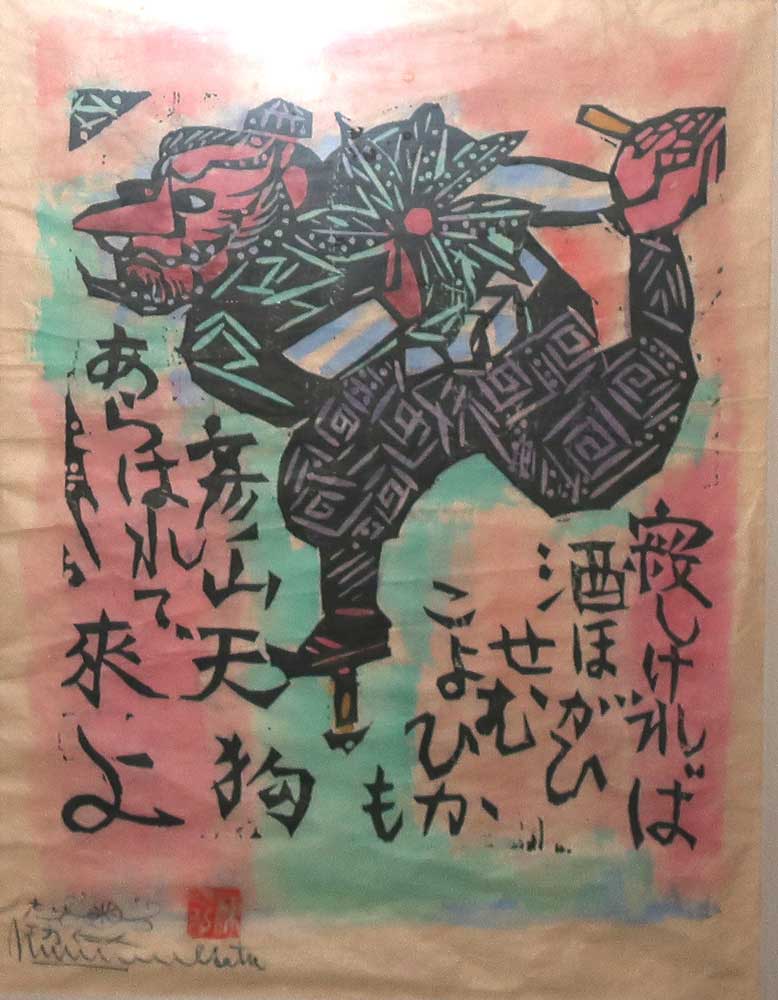 寂しければ
酒ほがひ
せむ
こよひか
も
彦山天狗
あらはれで
來よ